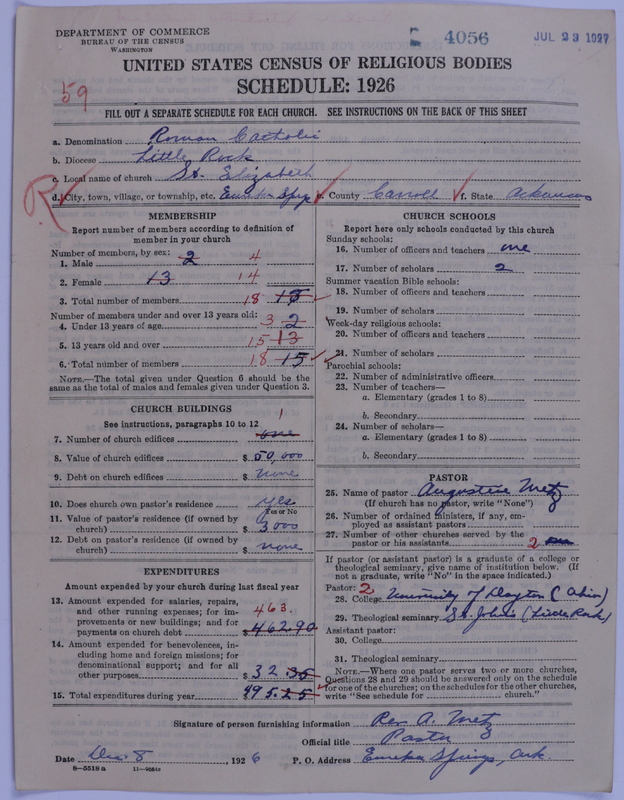 DEPARTMENT OF COMMERCE
BUREAU OF THE CENSUS
WASHINGTON
4056
JUL 23 1927
UNITED STATES CENSUS OF RELIGIOUS BODIES
SCHEDULE: 1926
59
FILL OUT A SEPARATE SCHEDULE FOR EACH CHURCH. SEE INSTRUCTIONS ON THE BACK OF THIS SHEET
a. Denomination Roman Catholic
b. Diocese Little Rock
c. Local name of church St. Elizabeth
R
d. City, town, village, or township, etc. Eureka Spgs e. County Carroll f. State Arkansas
MEMBERSHIP
Report number of members according to definition of member in your church
Number of members, by sex:
1. Male 2 4
2. Female 13 14
3. Total number of members 18 15
Number of members under and over 13 years old:
4. Under 13 years of age 3 2
5. 13 years old and over 15 13
6. Total number of members 18 15
NOTE.—The total given under Question 6 should be the
same as the total of males and females given under Question 3.
CHURCH BUILDINGS
See instructions, paragraphs 10 to 12
7. Number of church edifices one 1
8. Value of church edifices $ 50,000
9. Debt on church edifices $ none
10. Does church own pastor's residence yes
Yes or No
11. Value of pastor's residence (if owned by
church) $ 3,000
12. Debt on pastor's residence (if owned by
church) $ none
EXPENDITURES
Amount expended by your church during last fiscal year
13. Amount expended for salaries, repairs,
and other running expenses; for im-
provements or new buildings; and for
payments on church debt $ 462.90 463.
14. Amount expended for benevolences, in-
cluding home and foreign missions; for
denominational support; and for all
other purposes $ 32.35
15. Total expenditures during year $ 495.25
CHURCH SCHOOLS
Report here only schools conducted by this church
Sunday schools:
16. Number of officers and teachers one
17. Number of scholars 2
Summer vacation Bible schools:
18. Number of officers and teachers
19. Number of scholars
Week-day religious schools:
20. Number of officers and teachers
21. Number of scholars
Parochial schools:
22. Number of administrative officers
23. Number of teachers—
a. Elementary (grades 1 to 8)
b. Secondary
24. Number of scholars—
a. Elementary (grades 1 to 8)
b. Secondary
PASTOR
25. Name of pastor Augustine Metz
(If church has no pastor, write "None")
26. Number of ordained ministers, if any, em-
ployed as assistant pastors
27. Number of other churches served by the
pastor or his assistants 2
If pastor (or assistant pastor) is a graduate of a college or
theological seminary, give name of institution below. (If
not a graduate, write "No" in the space indicated.)
Pastor: 2
28. College University of Dayton (Ohio)
29. Theological seminary St. Johns (Little Rock)
Assistant pastor:
30. College
31. Theological seminary
NOTE.—Where one pastor serves two or more churches,
Questions 28 and 29 should be answered only on the schedule
for one of the churches; on the schedules for the other churches,
write "See schedule for church."
Signature of person furnishing information Rev. A. Metz
Official title Pastor
Date Dec. 8, 1926 P. O. Address Eureka Springs, Ark.
8—5518 a